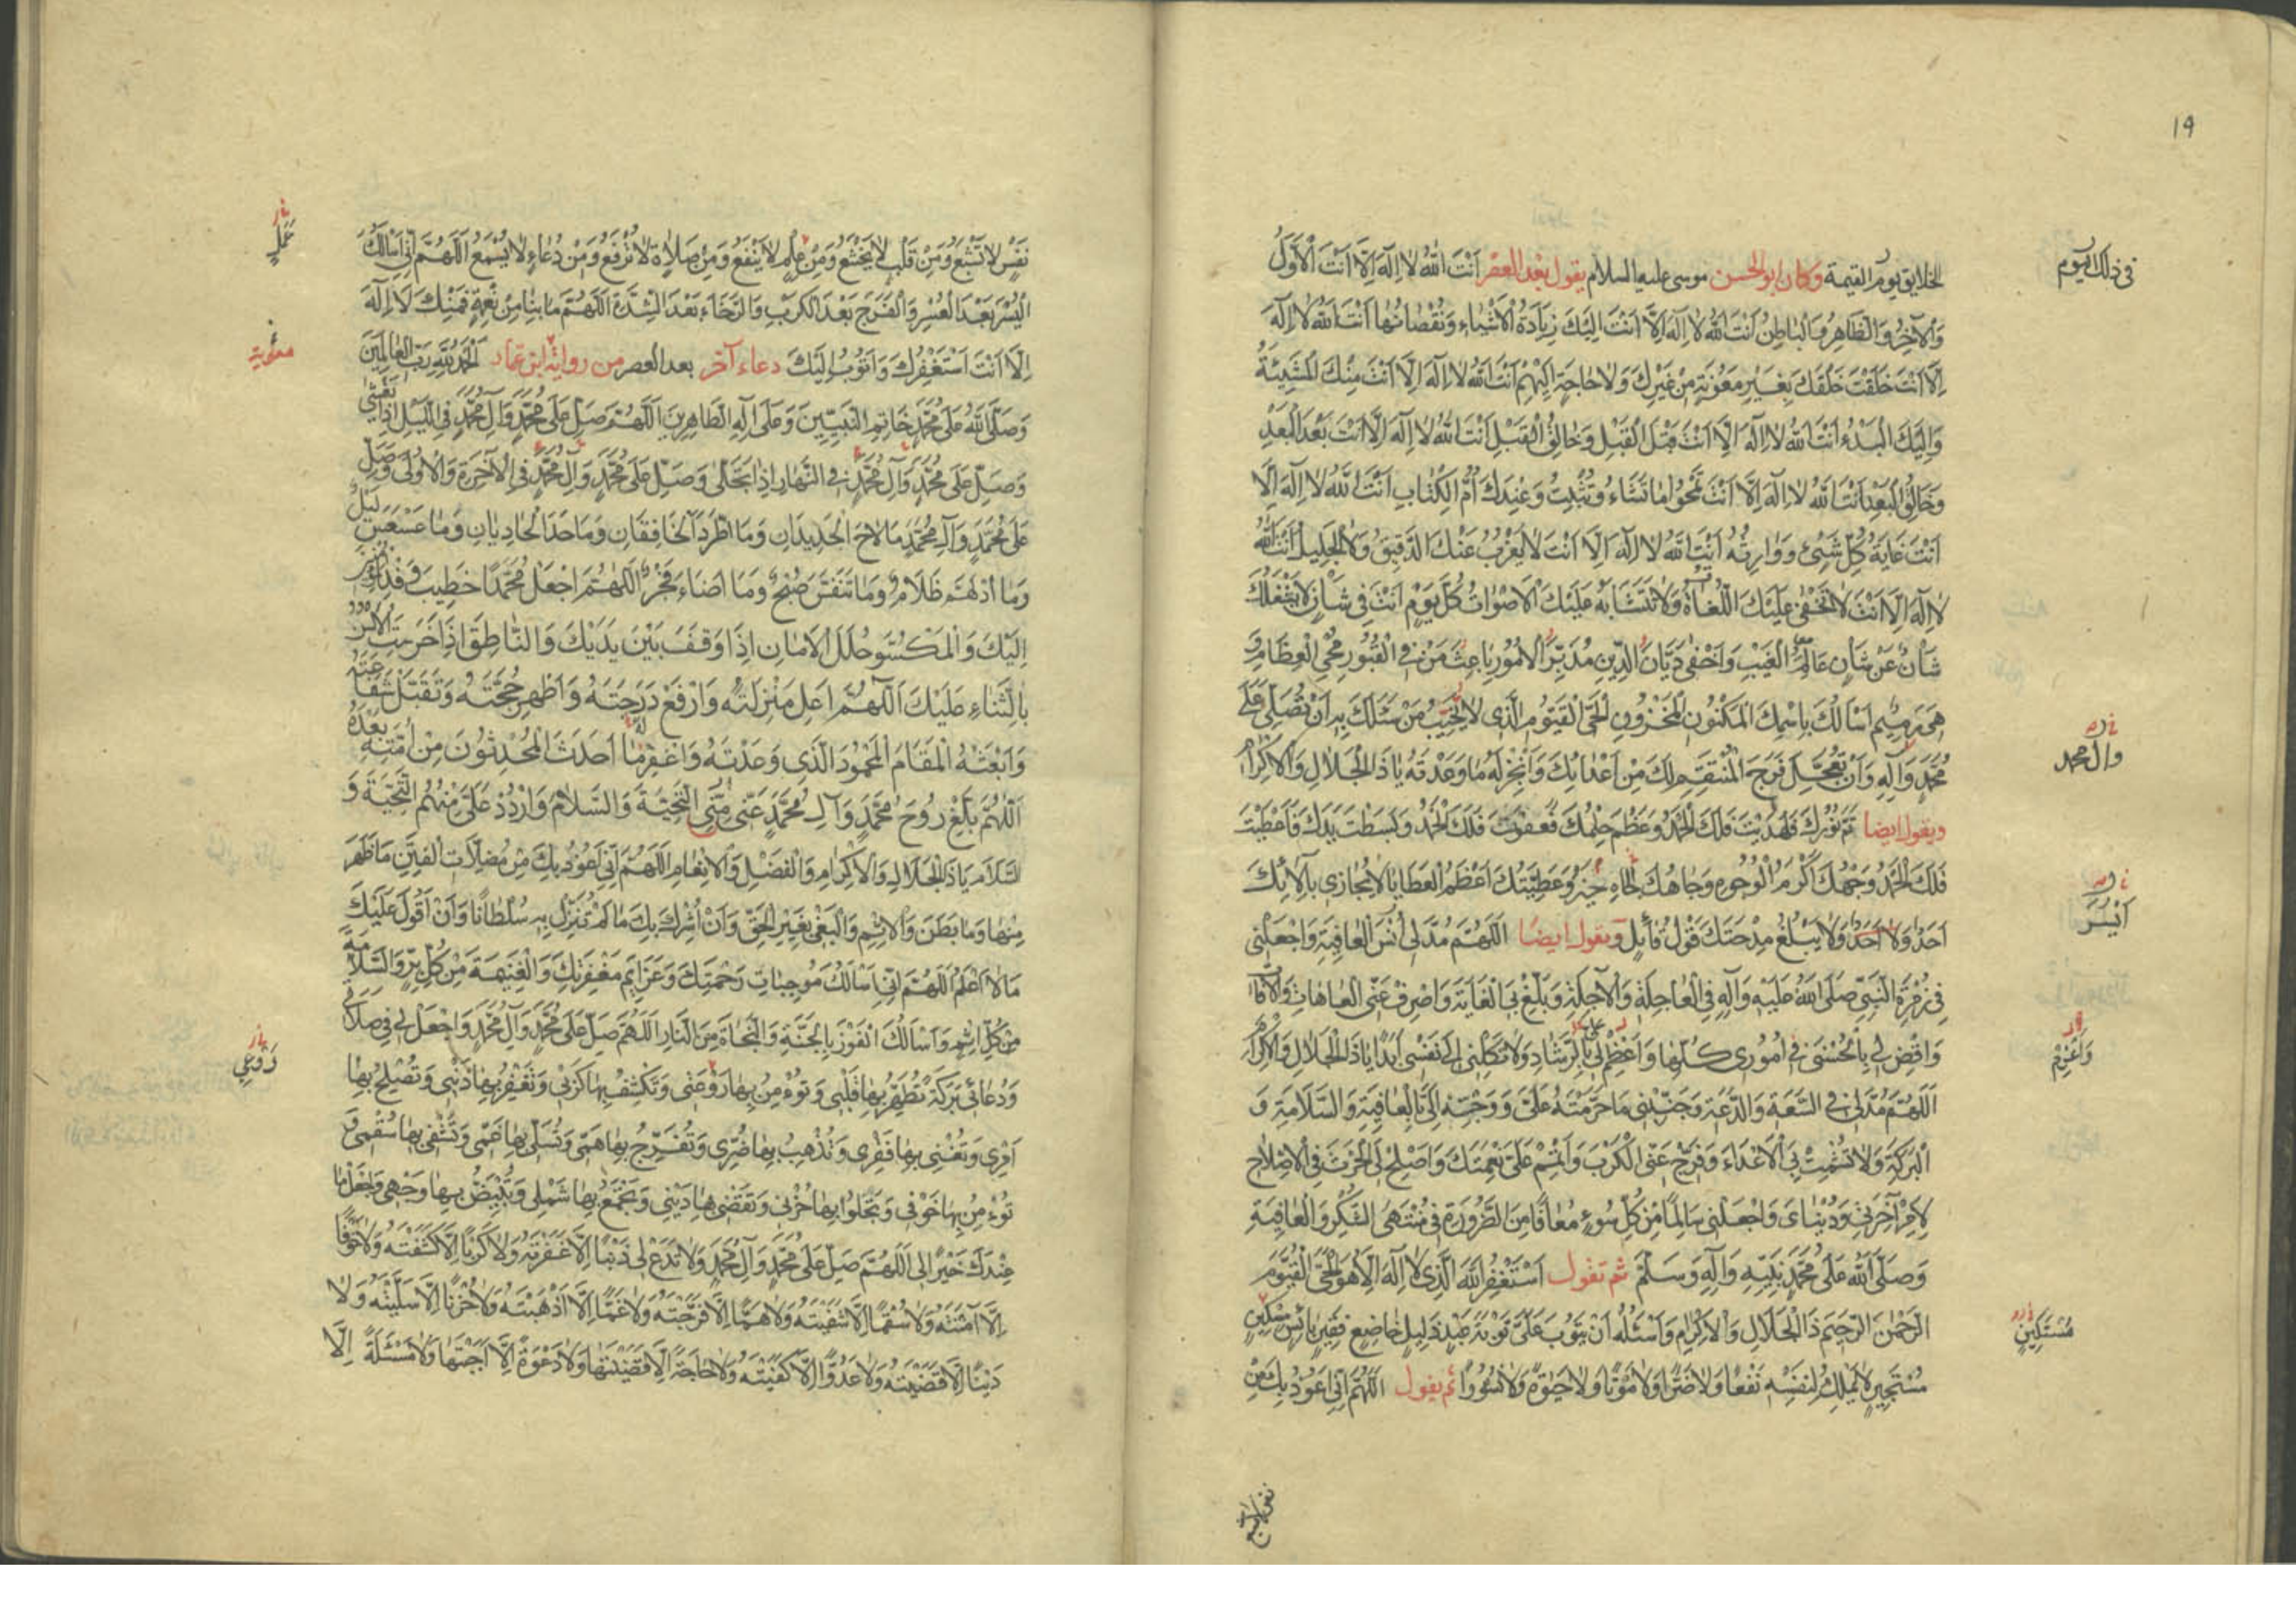 19
الخلايق يوم القيمة وكان ابو الحسن موسى عليه السلام يقول بعد العصر اَنْتَ اللهُ لا اِلهَ اِلّا اَنْتَ الْاَوَّلُ
فى ذلك اليوم
وَالْآخِرُ وَالظّاهِرُ وَالْباطِنُ اَنْتَ اللهُ لا اِلهَ اِلّا اَنْتَ اِلَيْكَ زِيادَةُ الْاَشْياءِ وَنُقْصانُها اَنْتَ اللهُ لا اِلهَ
اِلّا اَنْتَ خَلَقْتَ خَلْقَكَ بِغَيْرِ مَعُونَةٍ مِنْ غَيْرِكَ وَلا حاجَةٍ اِلَيْهِمْ اَنْتَ اللهُ لا اِلهَ اِلّا اَنْتَ مِنْكَ الْمَشِيَّةُ
وَاِلَيْكَ الْبَدْءُ اَنْتَ اللهُ لا اِلهَ اِلّا اَنْتَ قَبْلَ الْقَبْلِ وَخالِقُ الْقَبْلِ اَنْتَ اللهُ لا اِلهَ اِلّا اَنْتَ بَعْدَ الْبَعْدِ
وَخالِقُ الْبَعْدِ اَنْتَ اللهُ لا اِلهَ اِلّا اَنْتَ تَمْحُوا ما تَشاءُ وَتُثْبِتُ وَعِنْدَكَ اُمُّ الْكِتابِ اَنْتَ اللهُ لا اِلهَ اِلّا
اَنْتَ غايَةُ كُلِّ شَيْءٍ وَوارِثُهُ اَنْتَ اللهُ لا اِلهَ اِلّا اَنْتَ لا يَعْزُبُ عَنْكَ الدَّقِيقُ وَلَا الْجَلِيلُ اَنْتَ اللهُ
لا اِلهَ اِلّا اَنْتَ لا تَخْفى عَلَيْكَ اللُّغاتُ وَلا تَتَشابَهُ عَلَيْكَ الْاَصْواتُ كُلَّ يَوْمٍ اَنْتَ فِى شَاْنٍ لا يَشْغَلُكَ
شَاْنٌ عَنْ شَاْنٍ عالِمُ الْغَيْبِ وَاَخْفى دَيّانُ الدِّينِ مُدَبِّرُ الْاُمُورِ باعِثُ مَنْ فِى الْقُبُورِ مُحْيِى الْعِظامِ وَ
هِيَ رَمِيمٌ اَسْاَلُكَ بِاسْمِكَ الْمَكْنُونِ الْمَخْزُونِ الْحَىِّ الْقَيُّومِ الَّذِى لا يَخِيبُ مَنْ سَئَلَكَ بِهِ اَنْ تُصَلِّىَ عَلى
مُحَمَّدٍ وَآلِهِ وَاَنْ تُعَجِّلَ فَرَجَ الْمُنْتَقِمِ لَكَ مِنْ اَعْدائِكَ وَاَنْجِزْ لَهُ ما وَعَدْتَهُ يا ذَا الْجَلالِ وَالْاِكْرامِ
وآل محمد
ويقول ايضا تَمَّ نُورُكَ فَهَدَيْتَ فَلَكَ الْحَمْدُ وَعَظُمَ حِلْمُكَ فَعَفَوْتَ فَلَكَ الْحَمْدُ وَبَسَطْتَ يَدَكَ فَاَعْطَيْتَ
فَلَكَ الْحَمْدُ وَجْهُكَ اَكْرَمُ الْوُجُوهِ وَجاهُكَ خَيْرُ الْجاهِ وَعَطِيَّتُكَ اَعْظَمُ الْعَطايا لا يُجازِى بِآلائِكَ
اَحَدٌ وَلا يَبْلُغُ مِدْحَتَكَ قَوْلُ قائِلٍ ويقول ايضا اَللّهُمَّ مُدَّ لِى اَيْسَرَ الْعافِيَةِ وَاجْعَلْنِى
فِى زُمْرَةِ النَّبِىِّ صَلَّى اللهُ عَلَيْهِ وَآلِهِ فِى الْعاجِلَةِ وَالْآجِلَةِ وَبَلِّغْ بِىَ الْغايَةَ وَاصْرِفْ عَنِّى الْعاهاتِ وَالْآفاتِ
وَاقْضِ لِى بِالْحُسْنى فِى اُمُورِى كُلِّها وَاعْزِمْ لِى بِالرَّشادِ وَلا تَكِلْنِى اِلى نَفْسِى اَبَدًا يا ذَا الْجَلالِ وَالْاِكْرامِ
وَاعْزِمْ
اَللّهُمَّ مُدَّ لِى فِى السَّعَةِ وَالدَّعَةِ وَجَنِّبْنِى ما حَرَّمْتَهُ عَلَىَّ وَوَجِّهْ اِلَىَّ بِالْعافِيَةِ وَالسَّلامَةِ وَ
الْبَرَكَةِ وَلا تُشْمِتْ بِىَ الْاَعْداءَ وَفَرِّجْ عَنِّى الْكَرْبَ وَاَتْمِمْ عَلَىَّ نِعْمَتَكَ وَاَصْلِحْ لِىَ الْحَرْثَ فِى الْاِصْلاحِ
لِاَمْرِ آخِرَتِى وَدُنْياىَ وَاجْعَلْنِى سالِمًا مِنْ كُلِّ سُوءٍ مُعافًا مِنَ الضَّرُورَةِ فِى مُنْتَهَى الشُّكْرِ وَالْعافِيَةِ
وَصَلَّى اللهُ عَلى مُحَمَّدٍ نَبِيِّهِ وَآلِهِ وَسَلَّمَ ثم تقول اَسْتَغْفِرُ اللهَ الَّذِى لا اِلهَ اِلّا هُوَ الْحَىُّ الْقَيُّومُ
الرَّحْمنُ الرَّحِيمُ ذَا الْجَلالِ وَالْاِكْرامِ وَاَسْئَلُهُ اَنْ يَتُوبَ عَلَىَّ تَوْبَةَ عَبْدٍ ذَلِيلٍ خاضِعٍ فَقِيرٍ بائِسٍ مِسْكِينٍ
مُسْتَكِينٍ
مُسْتَجِيرٍ لا يَمْلِكُ لِنَفْسِهِ نَفْعًا وَلا ضَرًّا وَلا مَوْتًا وَلا حَيوةً وَلا نُشُورًا ثم يقول اَللّهُمَّ اِنِّى اَعُوذُ بِكَ مِنْ
نفس لا تشبع
نَفْسٍ لا تَشْبَعُ وَمِنْ قَلْبٍ لا يَخْشَعُ وَمِنْ عِلْمٍ لا يَنْفَعُ وَمِنْ صَلاةٍ لا تُرْفَعُ وَمِنْ دُعاءٍ لا يُسْمَعُ اَللّهُمَّ اِنِّى اَسْاَلُكَ
عَمَلٍ
الْيُسْرَ بَعْدَ الْعُسْرِ وَالْفَرَجَ بَعْدَ الْكَرْبِ وَالرَّخاءَ بَعْدَ الشِّدَّةِ اَللّهُمَّ ما بِنا مِنْ نِعْمَةٍ فَمِنْكَ لا اِلهَ
اِلّا اَنْتَ اَسْتَغْفِرُكَ وَاَتُوبُ اِلَيْكَ دعاء آخر بعد العصر من رواية ابن عمار اَلْحَمْدُ لِلّهِ رَبِّ الْعالَمِينَ
معوية
وَصَلَّى اللهُ عَلى مُحَمَّدٍ خاتِمِ النَّبِيِّينَ وَعَلى آلِهِ الطّاهِرِينَ اَللّهُمَّ صَلِّ عَلى مُحَمَّدٍ وَآلِ مُحَمَّدٍ فِى اللَّيْلِ اِذا يَغْشى
وَصَلِّ عَلى مُحَمَّدٍ وَآلِ مُحَمَّدٍ فِى النَّهارِ اِذا تَجَلّى وَصَلِّ عَلى مُحَمَّدٍ وَآلِ مُحَمَّدٍ فِى الْآخِرَةِ وَالْاُولى وَصَلِّ
عَلى مُحَمَّدٍ وَآلِ مُحَمَّدٍ ما لاحَ الْجَدِيدانِ وَما اطَّرَدَ الْخافِقانِ وَما حَدَا الْحادِيانِ وَما عَسْعَسَ لَيْلٌ
وَما ادْلَهَمَّ ظَلامٌ وَما تَنَفَّسَ صُبْحٌ وَما اَضاءَ فَجْرٌ اَللّهُمَّ اجْعَلْ مُحَمَّدًا خَطِيبَ وَفْدِ الْمُؤْمِنِينَ
اِلَيْكَ وَالْمَكْسُوَّ حُلَلَ الْاَمانِ اِذا وَقَفَ بَيْنَ يَدَيْكَ وَالنّاطِقَ اِذا خَرِسَتِ الْاَلْسُنُ
بِالثَّناءِ عَلَيْكَ اَللّهُمَّ اَعْلِ مَنْزِلَتَهُ وَارْفَعْ دَرَجَتَهُ وَاَظْهِرْ حُجَّتَهُ وَتَقَبَّلْ شَفاعَتَهُ
وَابْعَثْهُ الْمَقامَ الْمَحْمُودَ الَّذِى وَعَدْتَهُ وَاغْفِرْ لَهُ ما اَحْدَثَ الْمُحْدِثُونَ مِنْ اُمَّتِهِ بَعْدَهُ
اَللّهُمَّ بَلِّغْ رُوحَ مُحَمَّدٍ وَآلِ مُحَمَّدٍ عَنِّى مِنِّى التَّحِيَّةَ وَالسَّلامَ وَارْدُدْ عَلَىَّ مِنْهُمُ التَّحِيَّةَ وَ
السَّلامَ يا ذَا الْجَلالِ وَالْاِكْرامِ وَالْفَضْلِ وَالْاِنْعامِ اَللّهُمَّ اِنِّى اَعُوذُ بِكَ مِنْ مُضِلّاتِ الْفِتَنِ ما ظَهَرَ
مِنْها وَما بَطَنَ وَالْاِثْمِ وَالْبَغْىِ بِغَيْرِ الْحَقِّ وَاَنْ اُشْرِكَ بِكَ ما لَمْ تُنَزِّلْ بِهِ سُلْطانًا وَاَنْ اَقُولَ عَلَيْكَ
ما لا اَعْلَمُ اَللّهُمَّ اِنِّى اَسْاَلُكَ مُوجِباتِ رَحْمَتِكَ وَعَزائِمَ مَغْفِرَتِكَ وَالْغَنِيمَةَ مِنْ كُلِّ بِرٍّ وَالسَّلامَةَ
مِنْ كُلِّ اِثْمٍ وَاَسْاَلُكَ الْفَوْزَ بِالْجَنَّةِ وَالنَّجاةَ مِنَ النّارِ اَللّهُمَّ صَلِّ عَلى مُحَمَّدٍ وَآلِ مُحَمَّدٍ وَاجْعَلْ لِى فِى صَلاتِى
وَدُعائِى بَرَكَةً تُطَهِّرُ بِها قَلْبِى وَتُؤْمِنُ بِها رَوْعَتِى وَتَكْشِفُ بِها كَرْبِى وَتَغْفِرُ بِها ذَنْبِى وَتُصْلِحُ بِها
رَوْعِى
اَمْرِى وَتُغْنِى بِها فَقْرِى وَتُذْهِبُ بِها ضُرِّى وَتُفَرِّجُ بِها هَمِّى وَتُسَلِّى بِها غَمِّى وَتَشْفِى بِها سُقْمِى وَ
تُؤْمِنُ بِها خَوْفِى وَتَجْلُوا بِها حُزْنِى وَتَقْضِى بِها دَيْنِى وَتَجْمَعُ بِها شَمْلِى وَتُبَيِّضُ بِها وَجْهِى وَاجْعَلْ ما
عِنْدَكَ خَيْرًا لِى اَللّهُمَّ صَلِّ عَلى مُحَمَّدٍ وَآلِ مُحَمَّدٍ وَلا تَدَعْ لِى ذَنْبًا اِلّا غَفَرْتَهُ وَلا كَرْبًا اِلّا كَشَفْتَهُ وَلا خَوْفًا
اِلّا آمَنْتَهُ وَلا سُقْمًا اِلّا شَفَيْتَهُ وَلا هَمًّا اِلّا فَرَّجْتَهُ وَلا غَمًّا اِلّا اَذْهَبْتَهُ وَلا حُزْنًا اِلّا سَلَّيْتَهُ وَلا
دَيْنًا اِلّا قَضَيْتَهُ وَلا عَدُوًّا اِلّا كَفَيْتَهُ وَلا حاجَةً اِلّا قَضَيْتَها وَلا دَعْوَةً اِلّا اَجَبْتَها وَلا مَسْئَلَةً اِلّا